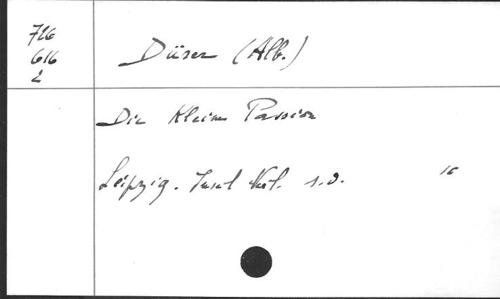 726
616
2
Dürer (Alb.)
Die Kleine Passion
Leipzig. Insel s.d. 16